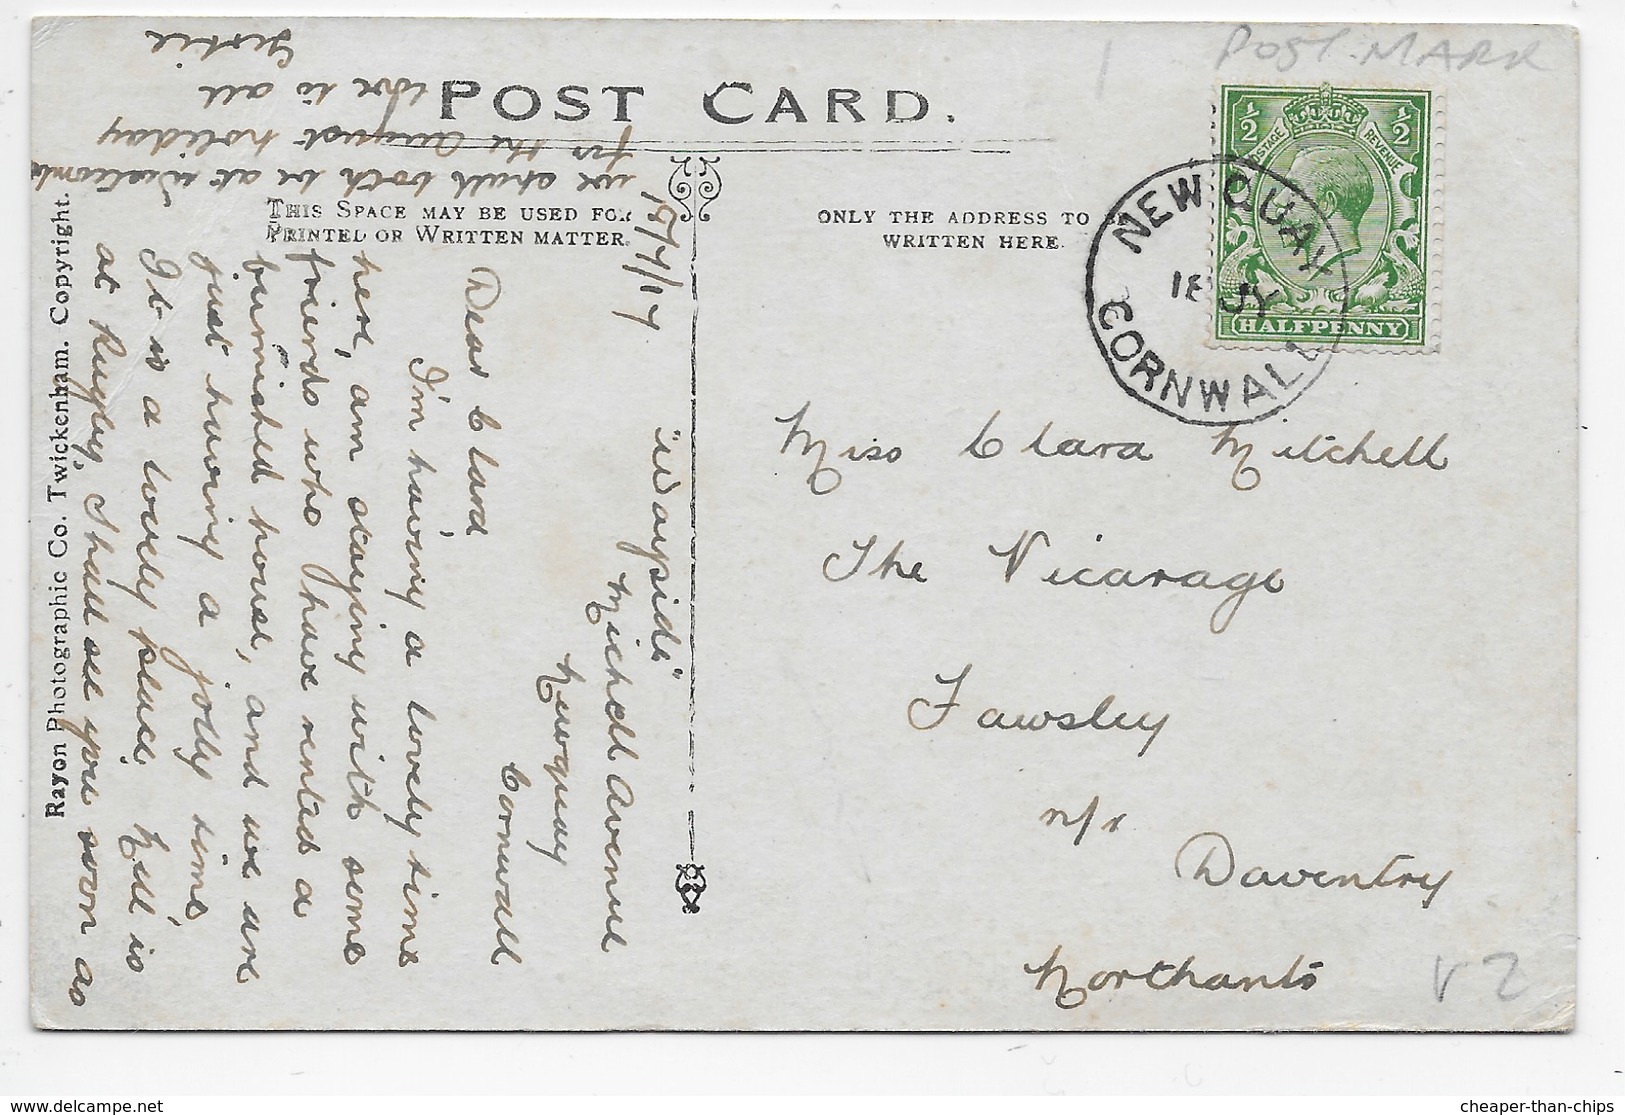 POST MARK
POST CARD.
THIS SPACE MAY BE USED FOR
PRINTED OR WRITTEN MATTER.
ONLY THE ADDRESS TO BE
WRITTEN HERE.
½ ½
POSTAGE REVENUE
HALFPENNY
NEWQUAY
18 JY
CORNWALL
Miss Clara Mitchell
The Vicarage
Fawsley
n/r
Daventry
Northants
V 2
18/7/17
"Wayside"
Michell Avenue
Newquay
Cornwall
Dear Clara
I'm having a lovely time
here, am staying with some
friends who have rented a
furnished house, and we are
just having a jolly time
It is a lovely place. Nell is
at Rugby, I shall see you soon as
we shall both be at
for the August holiday
Love to all
Gertie
Rayon Photographic Co. Twickenham. Copyright.
www.delcampe.net
cheaper-than-chips